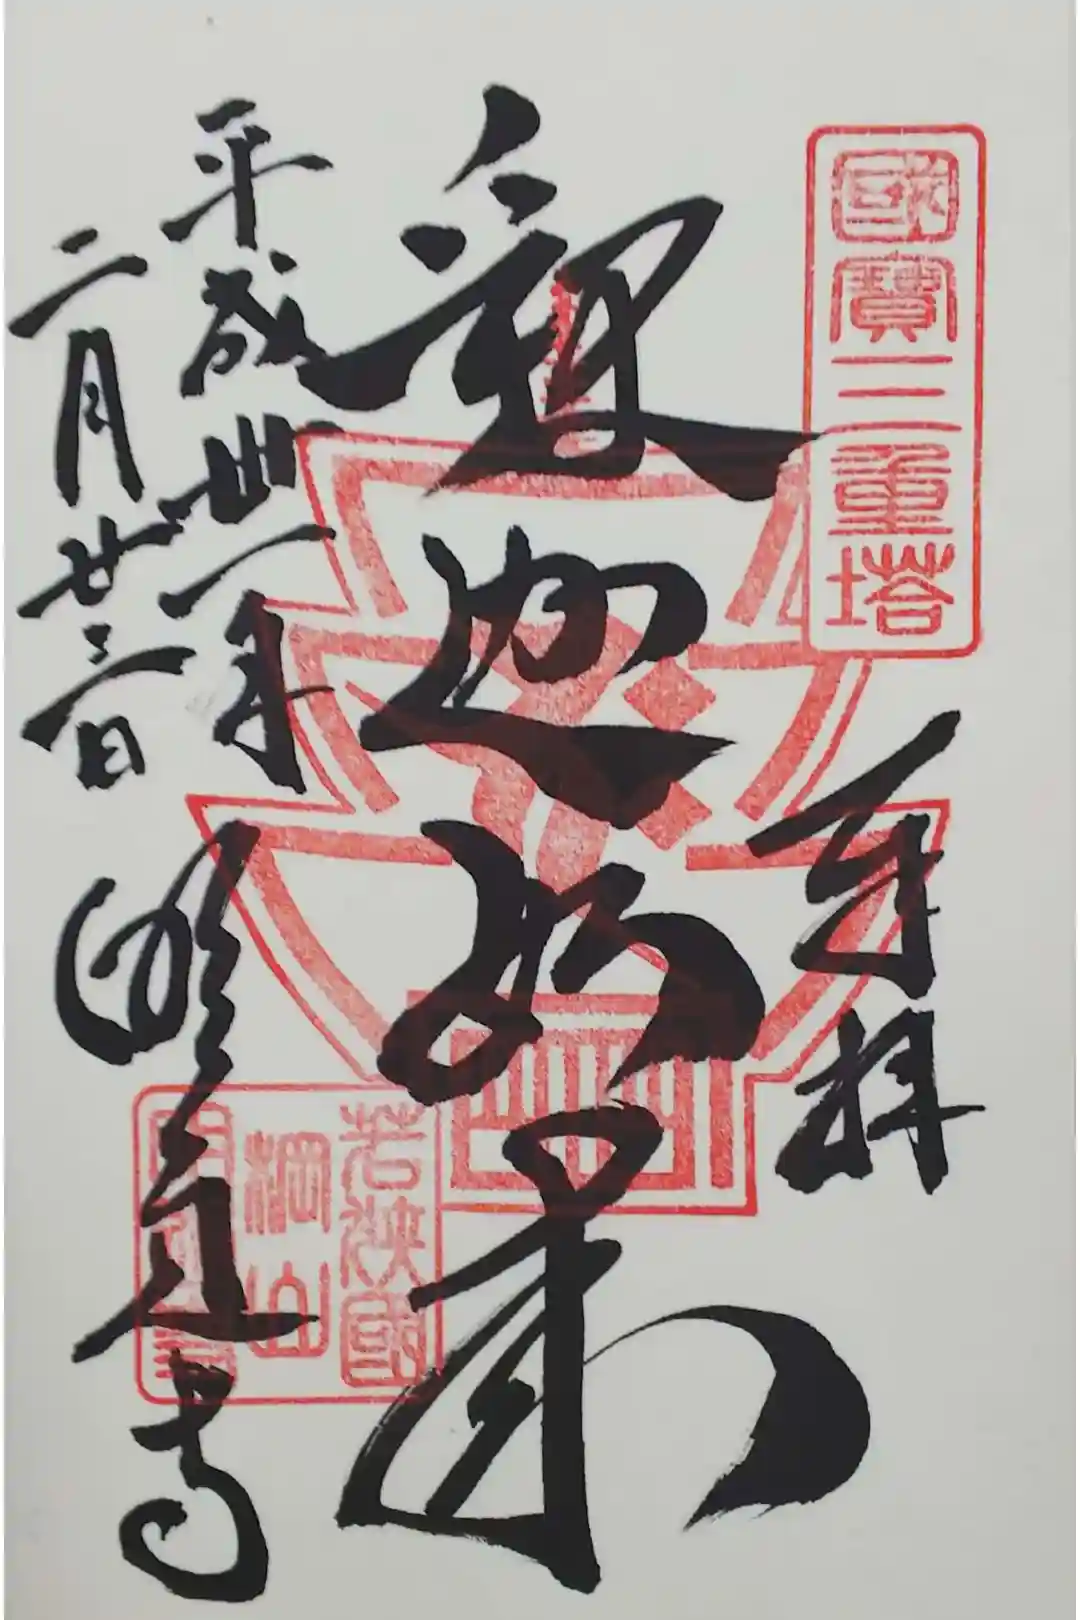 國寶三重塔
奉拝
釈迦如来
平成卅一年
二月廿三日
明通寺
若狭國
棡山
明通寺